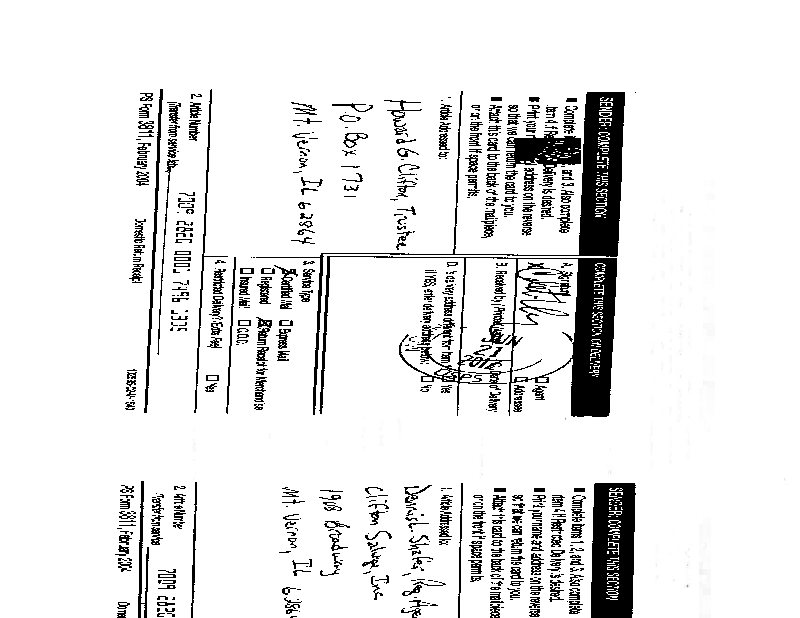 SENDER: COMPLETE THIS SECTION
■ Complete , and 3. Also complete
item 4 if Delivery is desired.
■ Print your address on the reverse
so that we can return the card to you.
■ Attach this card to the back of the mailpiece,
or on the front if space permits.
1. Article Addressed to:
Howard G. Clifton, Trustee
P.O. Box 1731
Mt. Vernon, IL 62864
COMPLETE THIS SECTION ON DELIVERY
A. Signature
X
☐ Agent
☐ Addressee
B. Received by (Printed Name)
C. Date of Delivery
JUN
21
2012
D. Is delivery address different from item 1? ☐ Yes
If YES, enter delivery address below: ☐ No
3. Service Type
☒ Certified Mail ☐ Express Mail
☐ Registered ☒ Return Receipt for Merchandise
☐ Insured Mail ☐ C.O.D.
4. Restricted Delivery? (Extra Fee) ☐ Yes
2. Article Number
(Transfer from service label)
7009 2820 0001 7496 2305
PS Form 3811, February 2004 Domestic Return Receipt
SENDER: COMPLETE THIS SECTION
■ Complete items 1, 2, and 3. Also complete
item 4 if Restricted Delivery is desired.
■ Print your name and address on the reverse
so that we can return the card to you.
■ Attach this card to the back of the mailpiece
or on the front if space permits.
1. Article Addressed to:
Dennis L. Shafer, Reg. Age
Clifton Salvag, Inc
1908 Broadway
Mt. Vernon, IL 6286
2. Article Number
(Transfer from service
7009 2820
PS Form 3811, February 2004